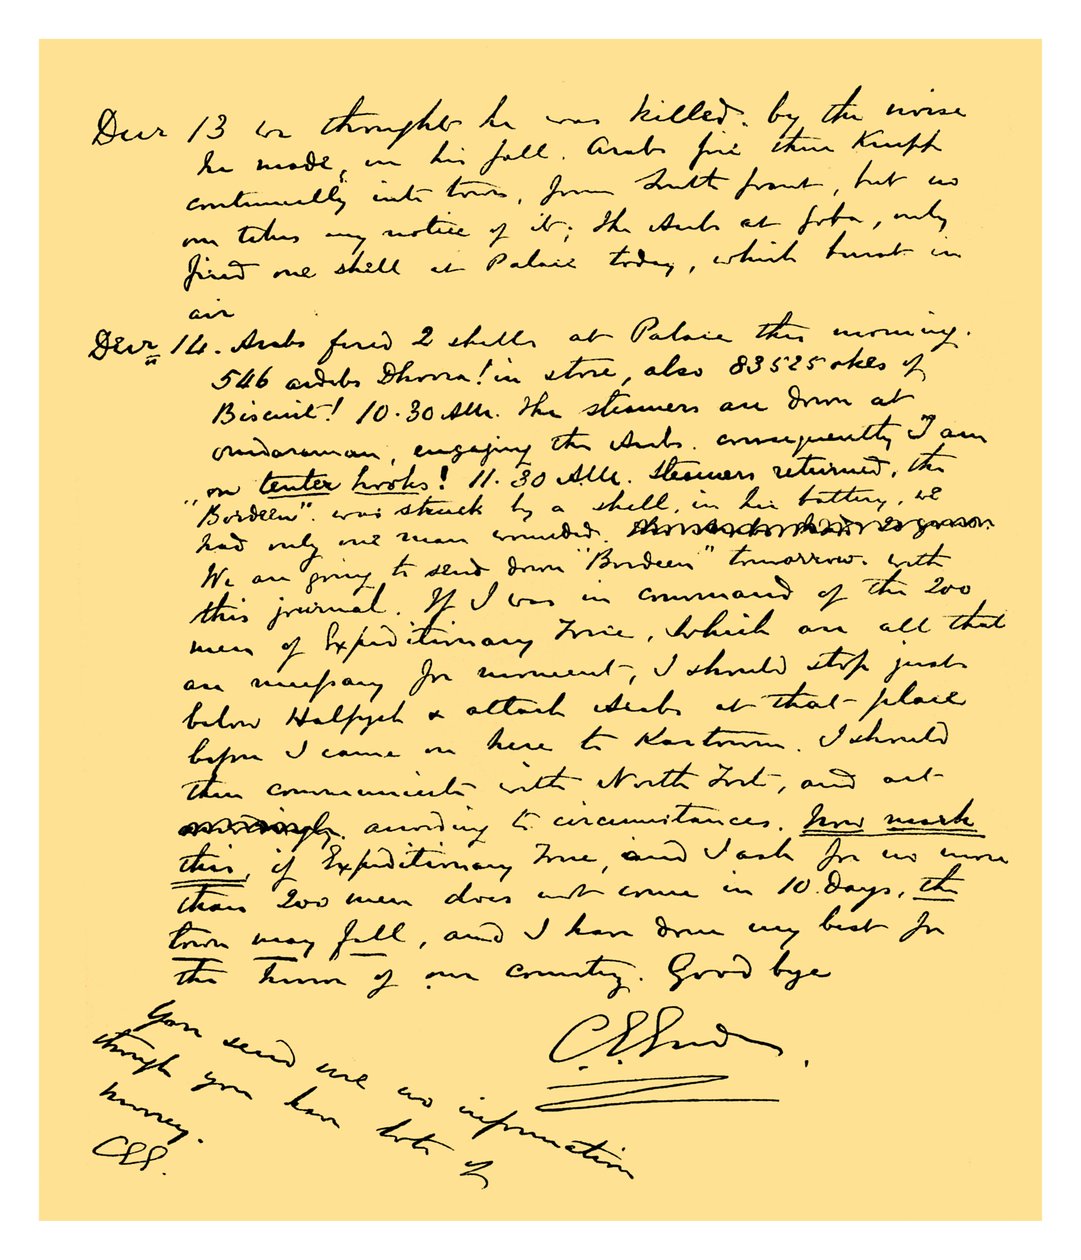 Decr 13 we thought he was killed. by the noise
he made, in his fall. Arabs fire their Krupp
continually into town, from South front, but no
one takes any notice of it; The Arabs at Goba, only
fired one shell at Palace today, which burst in
air
Decr 14. Arabs fired 2 shells at Palace this morning.
546 ardebs Dhoora! in store, also 83525 okes of
Biscuit! 10.30 AM. The steamers are down at
Omdaraman, engaging the Arabs. consequently I am
on tenter hooks! 11.30 AM. Steamers returned, the
"Bordeen". was struck by a shell, in her battery, we
had only one man wounded.
We are going to send down "Bordeen" tomorrow. with
this journal. If I was in command of the 200
men of Expeditionary Force, which are all that
are necessary for moment, I should stop just
below Halfyeh & attack Arabs at that place
before I came on here to Kartoum. I should
then communicate with North Fort, and act
according to circumstances. Now mark
this, if Expeditionary Force, and I ask for no more
than 200 men does not come in 10 days, the
town may fall, and I have done my best for
the honor of our country. Good bye
C. G. Gordon.
You send me no information
though you have lots of
money.
CGG.